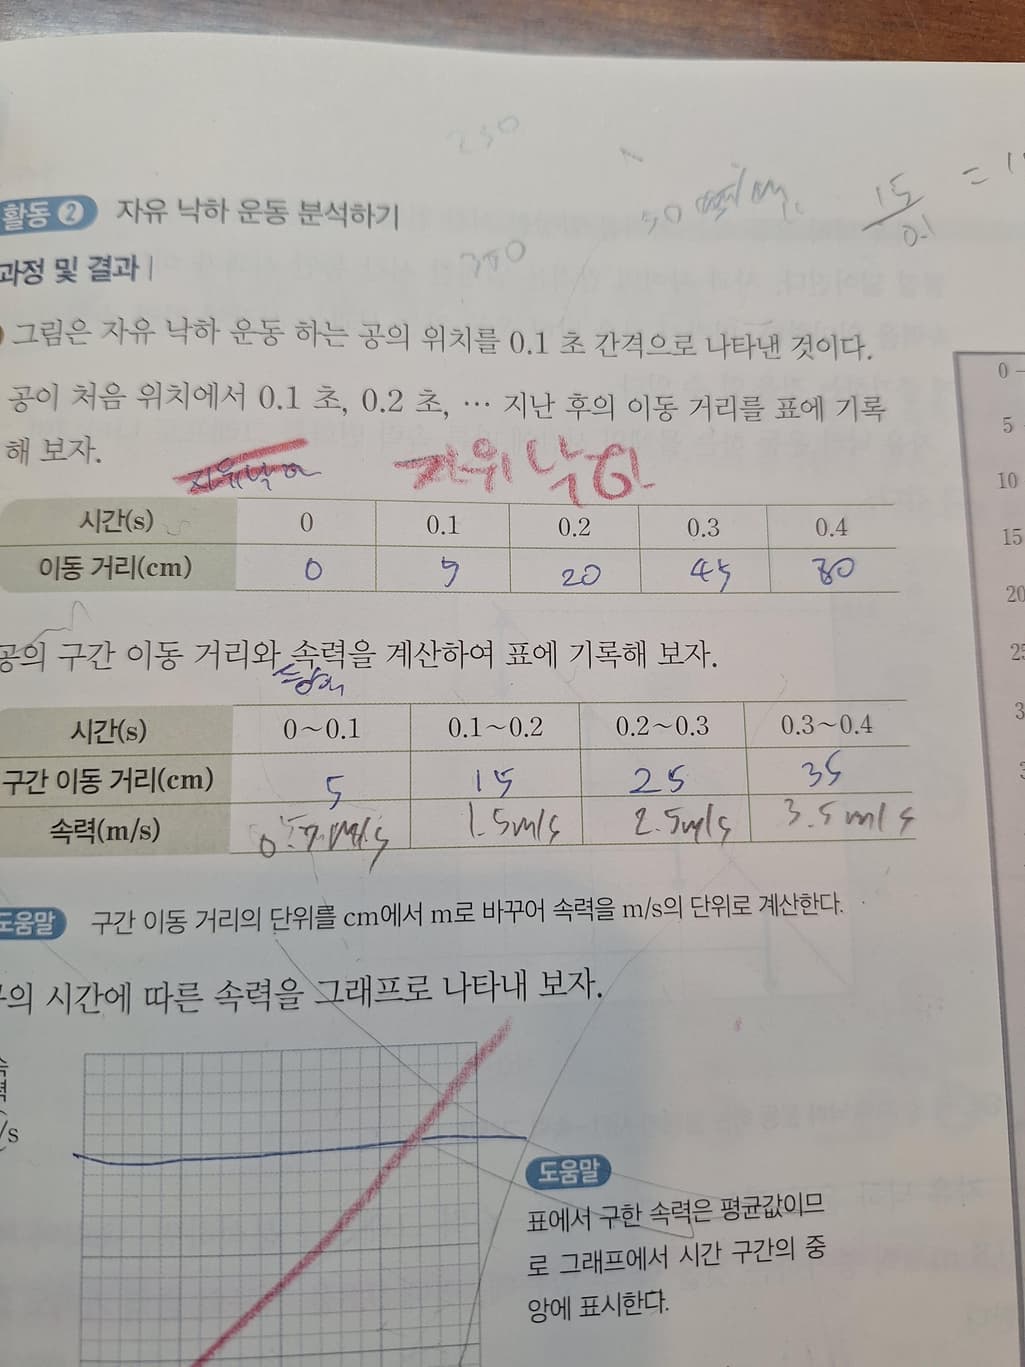 230
활동 2 자유 낙하 운동 분석하기
15
0.1
=
350
과정 및 결과
그림은 자유 낙하 운동 하는 공의 위치를 0.1 초 간격으로 나타낸 것이다.
공이 처음 위치에서 0.1 초, 0.2 초, … 지난 후의 이동 거리를 표에 기록
해 보자.
자유낙하
자유낙하
시간(s) 0 0.1 0.2 0.3 0.4
이동 거리(cm) 0 5 20 45 80
공의 구간 이동 거리와 속력을 계산하여 표에 기록해 보자.
시간(s) 0~0.1 0.1~0.2 0.2~0.3 0.3~0.4
구간 이동 거리(cm) 5 15 25 35
속력(m/s) 1.5m/s 2.5m/s 3.5m/s
도움말 구간 이동 거리의 단위를 cm에서 m로 바꾸어 속력을 m/s의 단위로 계산한다.
의 시간에 따른 속력을 그래프로 나타내 보자.
속
력
/s
도움말
표에서 구한 속력은 평균값이므
로 그래프에서 시간 구간의 중
앙에 표시한다.
0
5
10
15
20